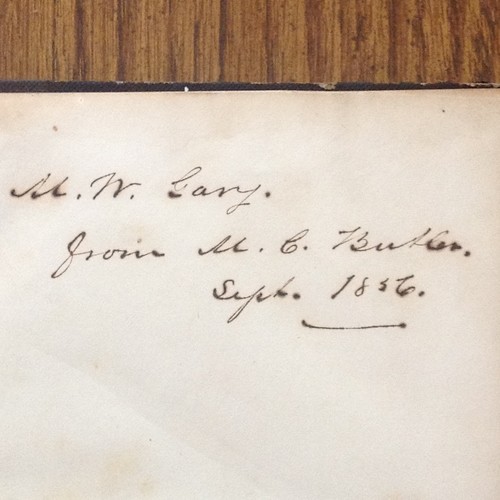 M. W. Gary.
from M. C. Butler.
Sept. 1856.